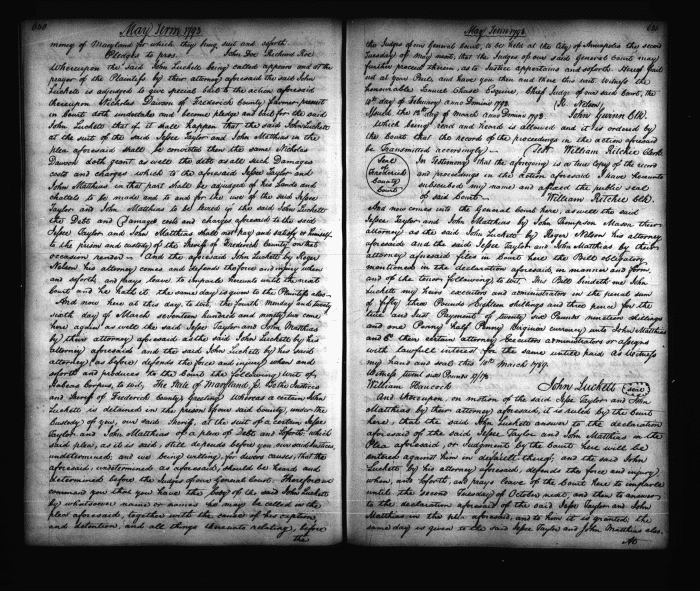 660
May Term 1793
money of Maryland for which they bring suit and so forth.
Pledges to pros. John Doe Richard Roe
Whereupon the said John Luckett being called appears and at the
prayer of the Plaintiffs by their attorney aforesaid the said John
Luckett is adjudged to give special bail to the action aforesaid
thereupon Nicholas Dawson of Frederick County farmer present
in Court doth undertake and become pledge and bail for the said
John Luckett that if it shall happen that the said John Luckett
at the suit of the said Jessee Taylor and John Matthias in the
plea aforesaid shall be convicted then the same Nicholas
Dawson doth grant as well the debt as all such Damages
costs and charges which to the aforesaid Jessee Taylor and
John Matthias in that part shall be adjudged of his Lands and
chattels to be made and to and for the use of the said Jessee
Taylor and John Matthias to be levied if the said John Luckett
the Debt and Damages costs and charges aforesaid to the said
Jessee Taylor and John Matthias shall not pay and satisfy or himself
to the prison and custody of the Sheriff of Frederick County on that
occasion render And the aforesaid John Luckett by Roger
Nelson his attorney comes and defends the force and injury when
and so forth and prays leave to imparle hereunto until the next
court and he hath it. the same day is given to the Plaintiffs also
And now here at this day to wit, the fourth Monday and twenty
sixth day of March seventeen hundred and ninety two come
here again as well the said Jessee Taylor and John Matthias
by their attorney aforesaid as the said John Luckett by his
attorney aforesaid and the said John Luckett by his said
attorney, as before, defends the force and injury when and
so forth and produces to the Court the following writ of
Habeas Corpus, to wit, The State of Maryland, to the Justices
and Sheriff of Frederick County Greeting Whereas a certain John
Luckett is detained in the prison of our said county, under the
Custody of you, our said Sheriff, at the suit of a certain Jessee
Taylor and John Matthias of a plea of Debt and so forth which
said plea, as it is said still depends before you, our said Justices
undetermined, and we being willing, for divers causes, that the
aforesaid, undetermined as aforesaid, should be heard and
determined before the Judges of our General Court. Therefore we
command you that you have the body of the said John Luckett
by whatsoever name or names he may be called in the
plea aforesaid, together with the cause of his caption
and detention, and all things thereunto relating, before
the
May Term 1793
661
the Judges of our General Court, to be held at the City of Annapolis the second
Tuesday of May next, that the Judges of our said General Court may
further proceed therein, as to justice appertains and so forth. Hereof fail
not at your Peril, and have you then and there this writ. Witness the
honourable Samuel Chase Esquire, Chief Judge of our said Court, the
day of February anno Domini 1792. (R. Nelson)
Issued the 12th day of March anno Domini 1792 John Gwinn Clk.
Which being read and heard is allowed and it is ordered by
the Court that the record of the proceedings in the action aforesaid
be transmitted accordingly. Test William Ritchie Clerk
Seal of Frederick County Court
In Testimony that the aforegoing is a true Copy of the record
and proceedings in the action aforesaid I have hereunto
subscribed my name and affixed the public seal
of said Court William Ritchie Clk.
And now come into the General Court here, as well the said
Jessee Taylor and John Matthias by John Thompson Mason their
attorney as the said John Luckett by Roger Nelson his attorney
aforesaid and the said Jessee Taylor and John Matthias by their
attorney aforesaid files in Court here the Bill obligatory
mentioned in the declaration aforesaid in manner and form,
and of the tenor following to wit, This Bill bindeth me John
Luckett my heirs executors and administrators in the penal sum
of fifty three Pounds Eighteen shillings and three pence for the
true and Just Payment of twenty six Pounds nineteen shillings
and one Penny half Penny Virginia currency unto John Matthias
and Co their certain attorney Executors administrators or assigns
with lawful interest for the same until paid as Witness
my hand and seal this 10th March 1789.
William Hancock John Luckett (Seal)
And thereupon, on motion of the said Jessee Taylor and John
Matthias by their attorney aforesaid, it is ruled by the Court
here, that the said John Luckett answer to the declaration
aforesaid of the said Jessee Taylor and John Matthias in the
Plea aforesaid, or Judgment by the Court here will be
entered against him in default thereof; and the said John
Luckett by his attorney aforesaid, defends the force and injury
when, and so forth, and prays leave of the Court here to imparle
until the second Tuesday of October next, and then to answer
to the declaration aforesaid of the said Jessee Taylor and John
Matthias in the plea aforesaid, and to him it is granted; the
same day is given to the said Jessee Taylor and John Matthias also.
At